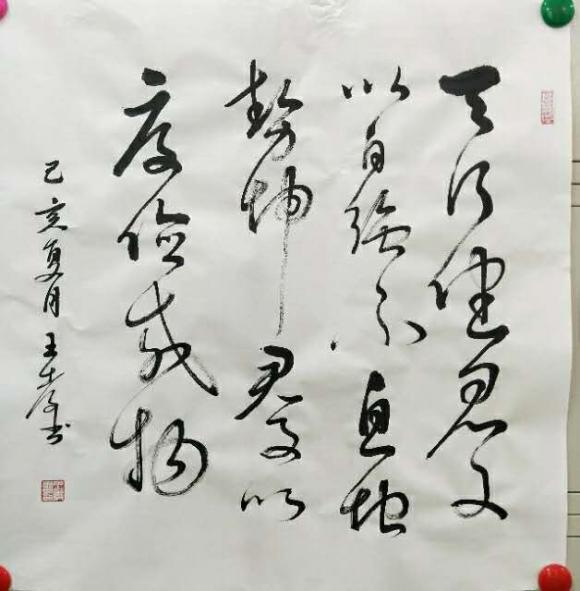 天行健君子
以自強不息地
勢坤君子以
厚德載物
己亥夏月王 书